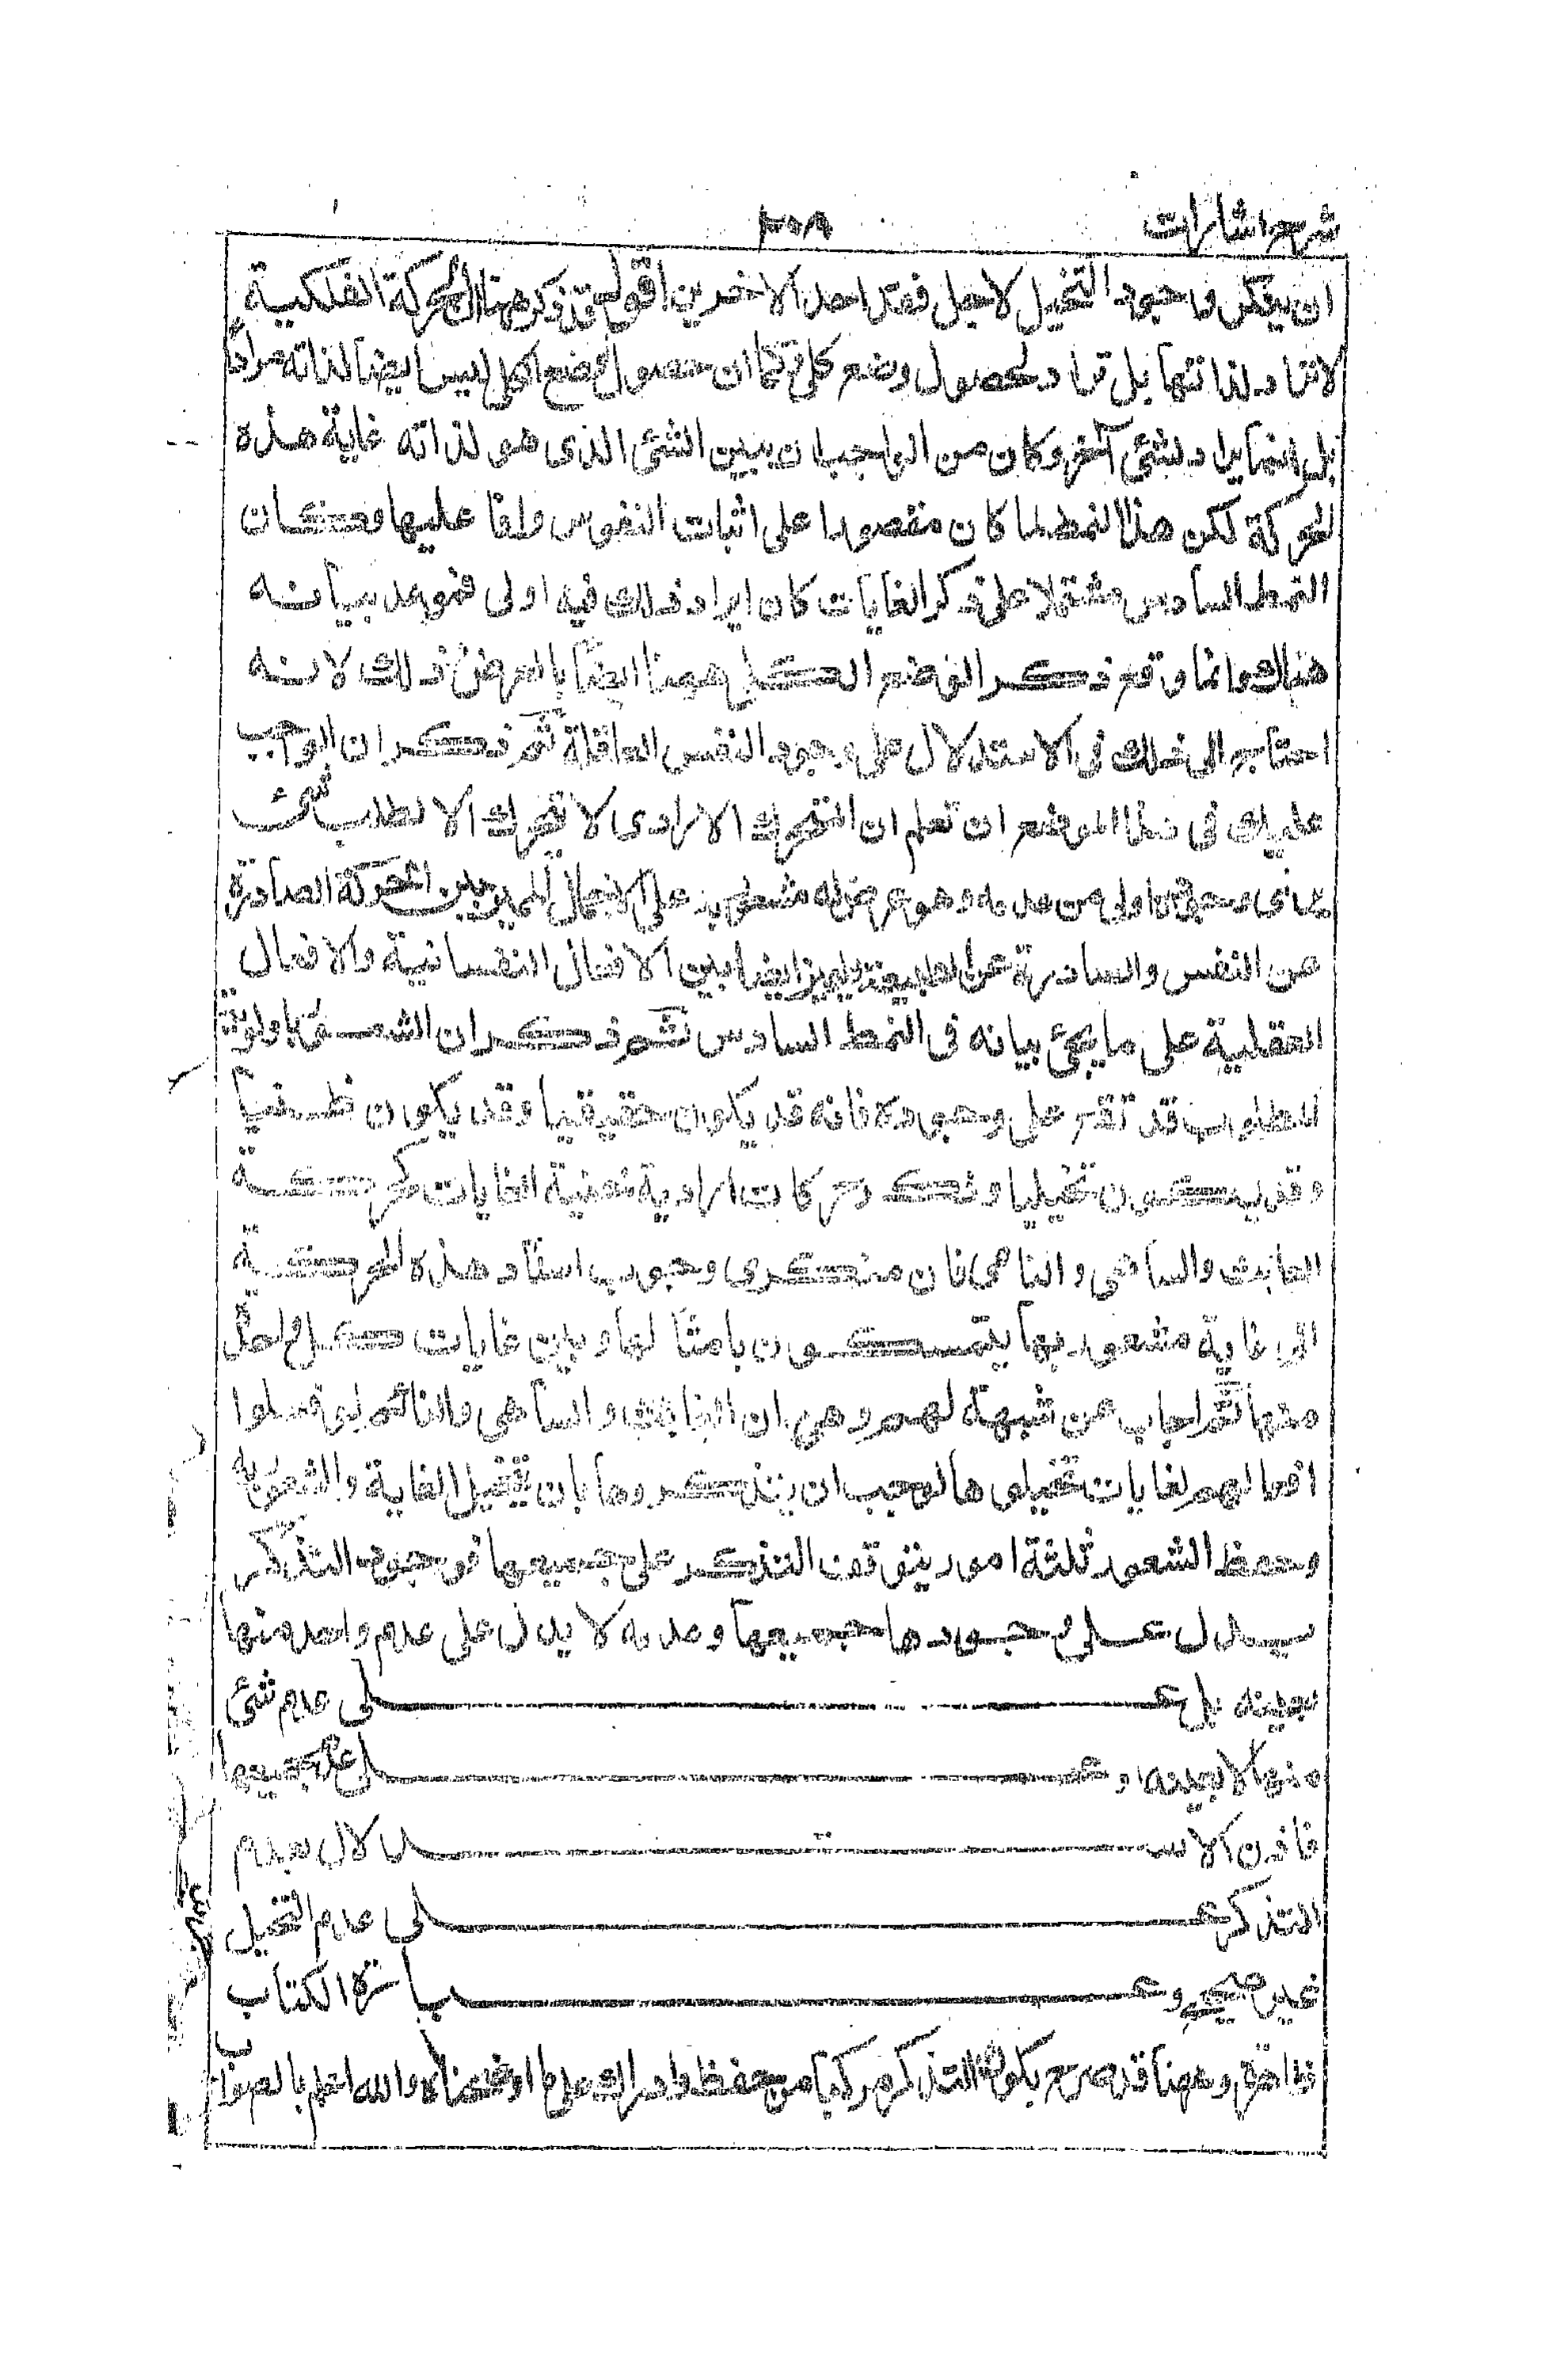 شرح اشارات
٣٥٨
ان ينكر وجود التخيل لاجل فقد احد الاخرين اقول قد ذكر هنا ان الحركة الفلكية
لا تراد لذاتها بل تراد لحصول وضع كلى كما ان حصول الوضع الكلى ليس ايضا لذاته مرادا
بل انما يراد لشئ آخر وكان من الواجب ان يبين الشئ الذى هو لذاته غاية هذه
الحركة لكن هذا النمط لما كان مقصورا على اثبات النفوس وقواها عليها وكان
النمط السادس مشتملا على ذكر الغايات كان ايراد ذلك فيه اولى فموعد بيانه
هناك وانما وقع ذكر الوضع الكلى ههنا ايضا بالعرض وذلك لانه
احتاج الى ذلك فى الاستدلال على وجود النفس العاقلة ثم ذكر ان الواجب
عليك فى هذا الموضع ان تعلم ان المتحرك الارادى لا يتحرك الا لطلب شئ
وجوده اولى من عدمه وهو على الاجمال المميز بين الحركة الصادرة
عن النفس والصادرة عن الطبيعة ويميز ايضا بين الافعال النفسانية والافعال
العقلية على ما يجئ بيانه فى النمط السادس ثم ذكر ان الشعور باولوية
المطلوب قد تقع على وجوه فانه قد يكون حقيقيا وقد يكون ظنيا
وقد يكون تخيليا وذكر حركات ارادية خفية الغايات كحركة
العابث والساهى والنائم فان منكرى وجوب اسناد هذه الحركة
الى غاية مشعور بها يتمسكون بامثالها وبين غايات كل واحد
منها ثم اجاب عن شبهة لهم وهى ان العابث والساهى والنائم لو فعلوا
افعالهم لغايات تخيلوها لوجب ان يتذكروها بان تخيل الغاية والشعور به
وحفظ الشعور ثلثة امور يتوقف التذكر على جميعها فوجود التذكر
يدل على وجودها جميعها وعدمه لا يدل على عدم واحد منها
بعينه بل على عدم شئ
منها لا بعينه او على عدم جميعها
فاذن الاستدلال بعدم
التذكر على عدم التخيل
غير صحيح وعبارة الكتاب
ظاهرة وههنا قد صرح بكون التذكر مركبا من حفظ وادراك على ما اوضحناه والله اعلم بالصواب